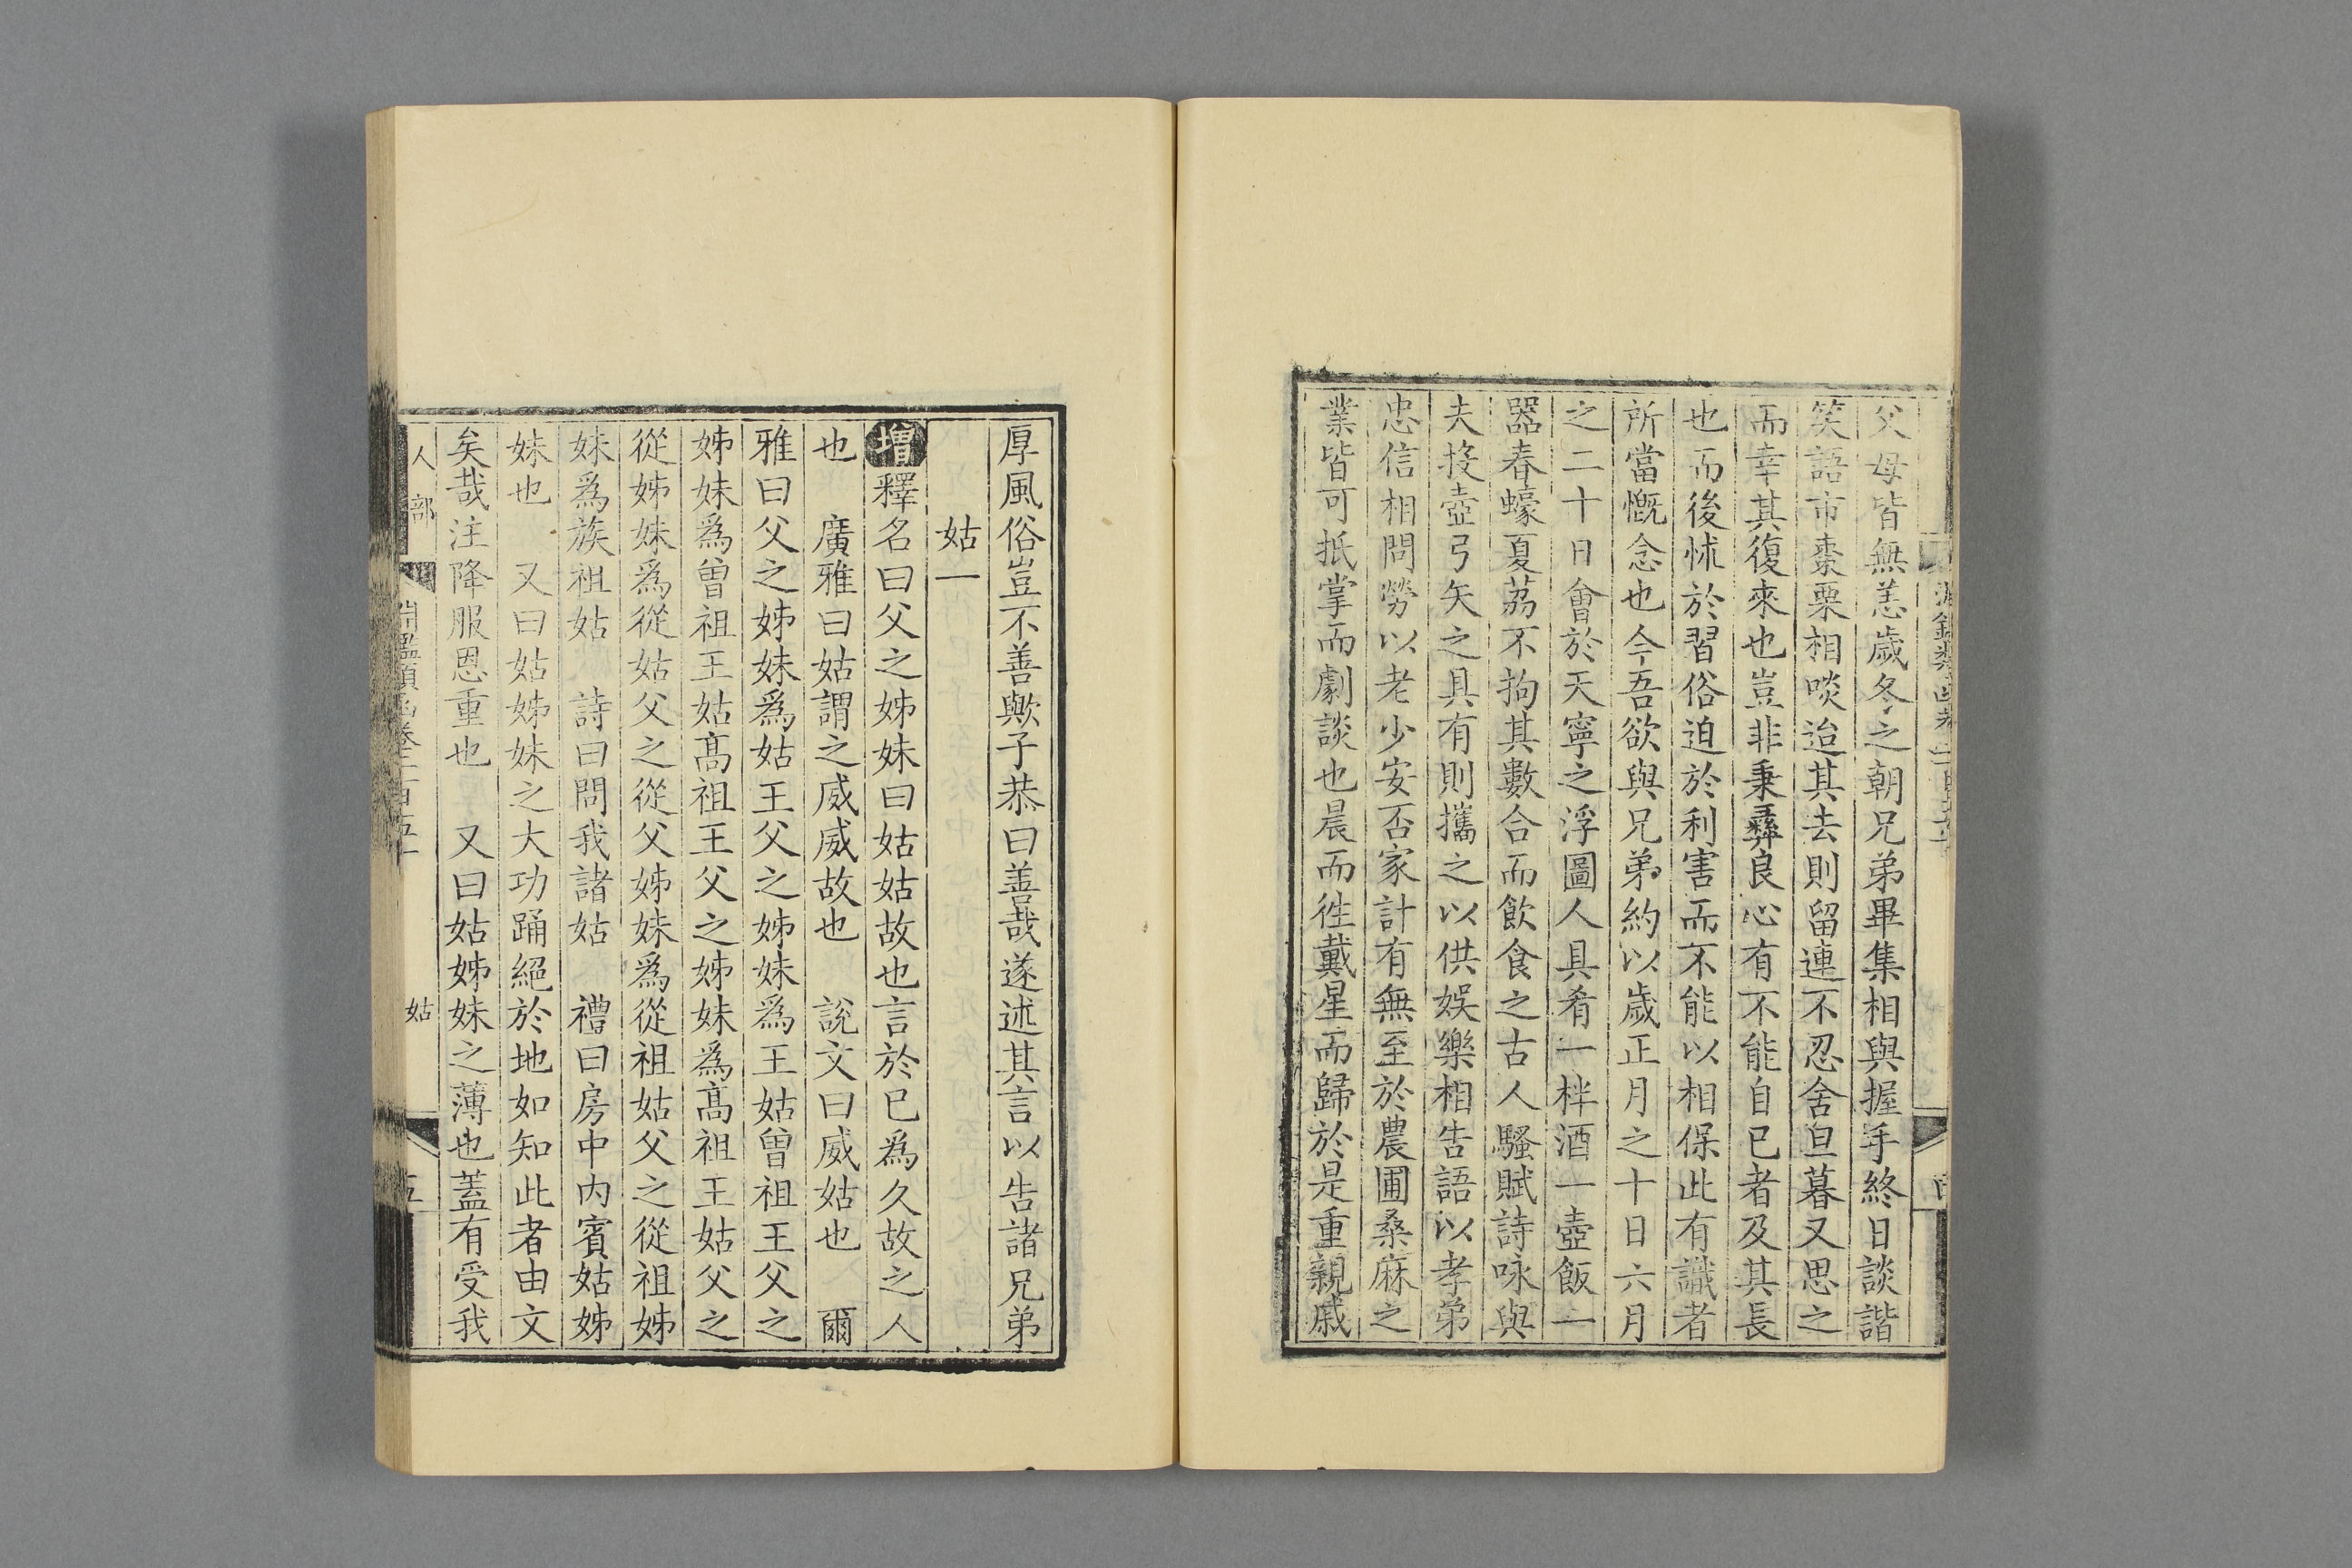 父母皆無恙歲冬之朝兄弟畢集相與握手終日談諧
笑語市棗栗相啖迨其去則留連不忍舍旦暮又思之
而幸其復來也豈非秉彝良心有不能自已者及其長
也而後怵於習俗迫於利害而不能以相保此有識者
所當慨念也今吾欲與兄弟約以歲正月之十日六月
之二十日會於天寧之浮圖人具肴一柈酒一壺飯一
器春蠔夏荔不拘其數合而飲食之古人騷賦詩咏與
夫投壺弓矢之具有則攜之以供娛樂相告語以孝弟
忠信相問勞以老少安否家計有無至於農圃桑麻之
業皆可抵掌而劇談也晨而徃戴星而歸於是重親戚
厚風俗豈不善歟子恭曰善哉遂述其言以告諸兄弟
姑一
增釋名曰父之姊妹曰姑姑故也言於已爲久故之人
也　廣雅曰姑謂之威威故也　說文曰威姑也　爾
雅曰父之姊妹爲姑王父之姊妹爲王姑曾祖王父之
姊妹爲曾祖王姑高祖王父之姊妹爲高祖王姑父之
從姊妹爲從姑父之從父姊妹爲從祖姑父之從祖姊
妹爲族祖姑　詩曰問我諸姑　禮曰房中內賓姑姊
妹也　又曰姑姊妹之大功踊絕於地如知此者由文
矣哉注降服恩重也　又曰姑姊妹之薄也蓋有受我
人部　淵鑑類函卷二百五十　姑　五